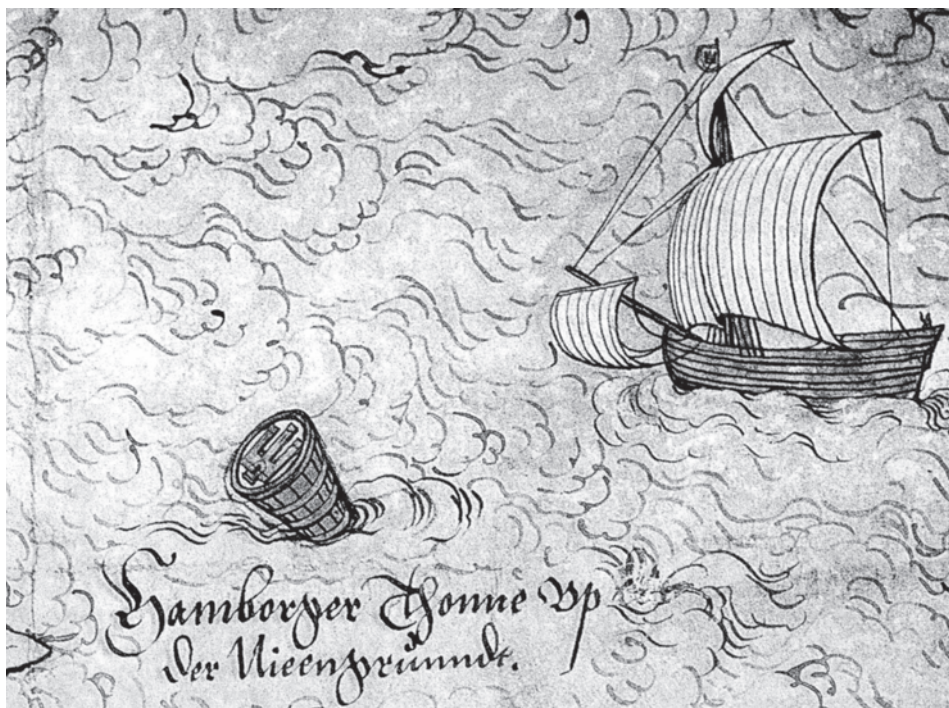 Hamborger Thonne Vp
der Nieengrunndt.